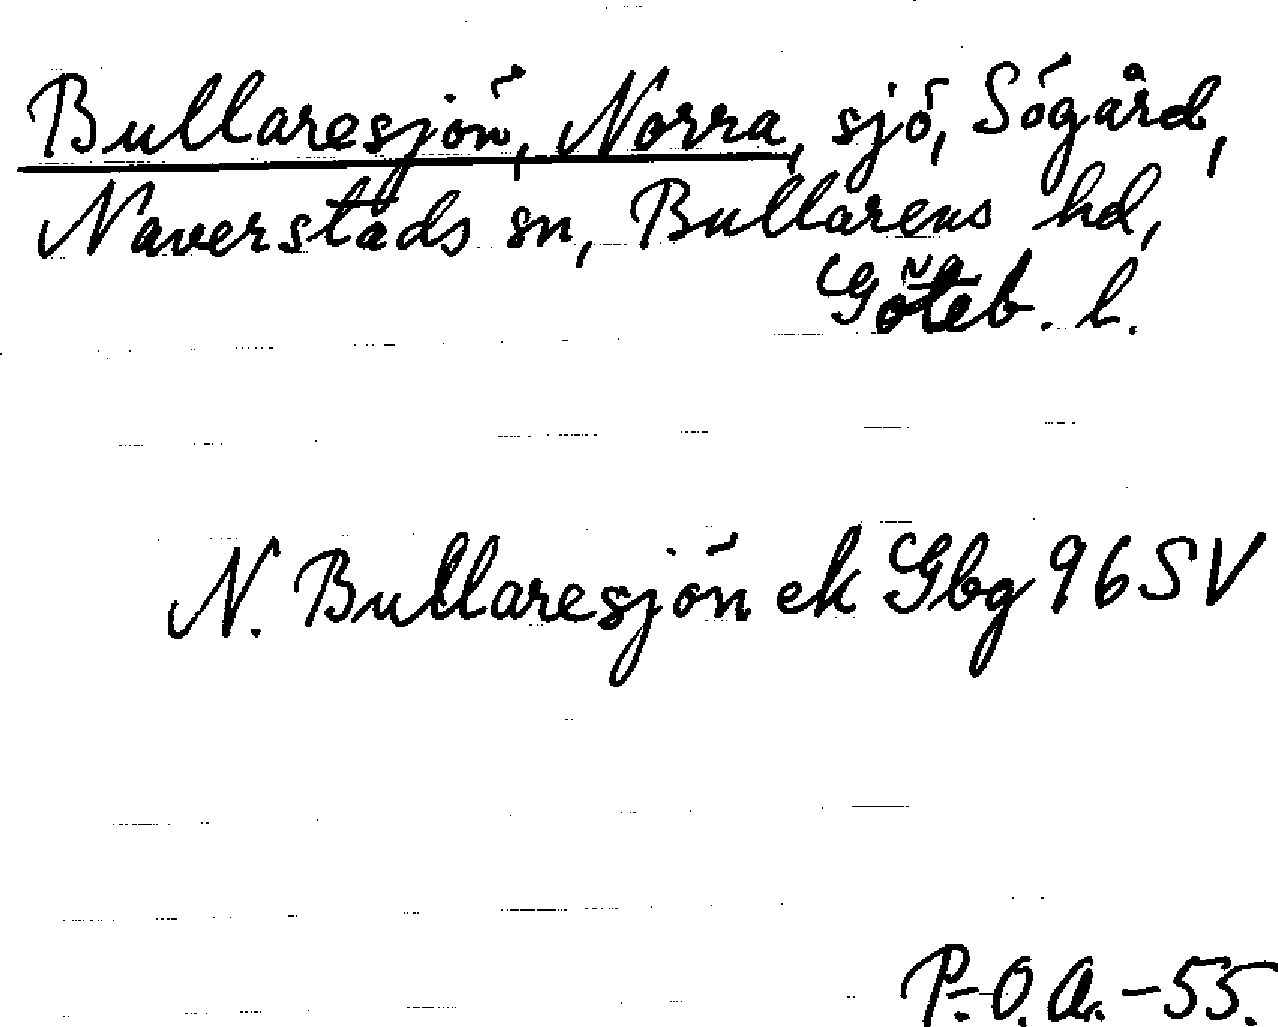 Bullaresjön, Norra, sjö, Sögård,
Naverstads sn, Bullarens hd,
Göteb. l.
N. Bullaresjön ek Gbg 96 SV
P.-O. A. -55.